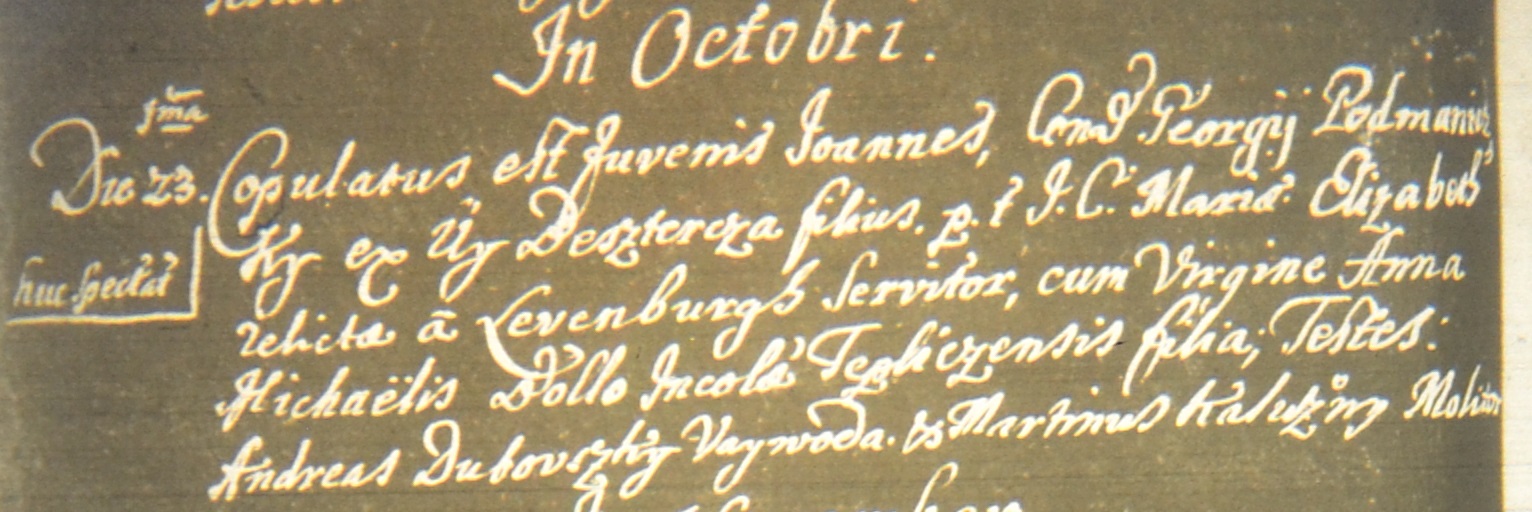 In Octobri.
1ma
Die 23. Copulatus est Juvenis Joannes, Cond. Georgij Podmanicz
ky ex Üy Desztercza filius. p. t. I. C. Mariæ Elizabeth
huc spectat
relictæ ā Levenburgh Servitor, cum Virgine Anna
Michaëlis Dollo Incolæ Tepliczensis filia; Testes:
Andreas Dubovszky Vaywoda. & Martinus Kalužny Molitor